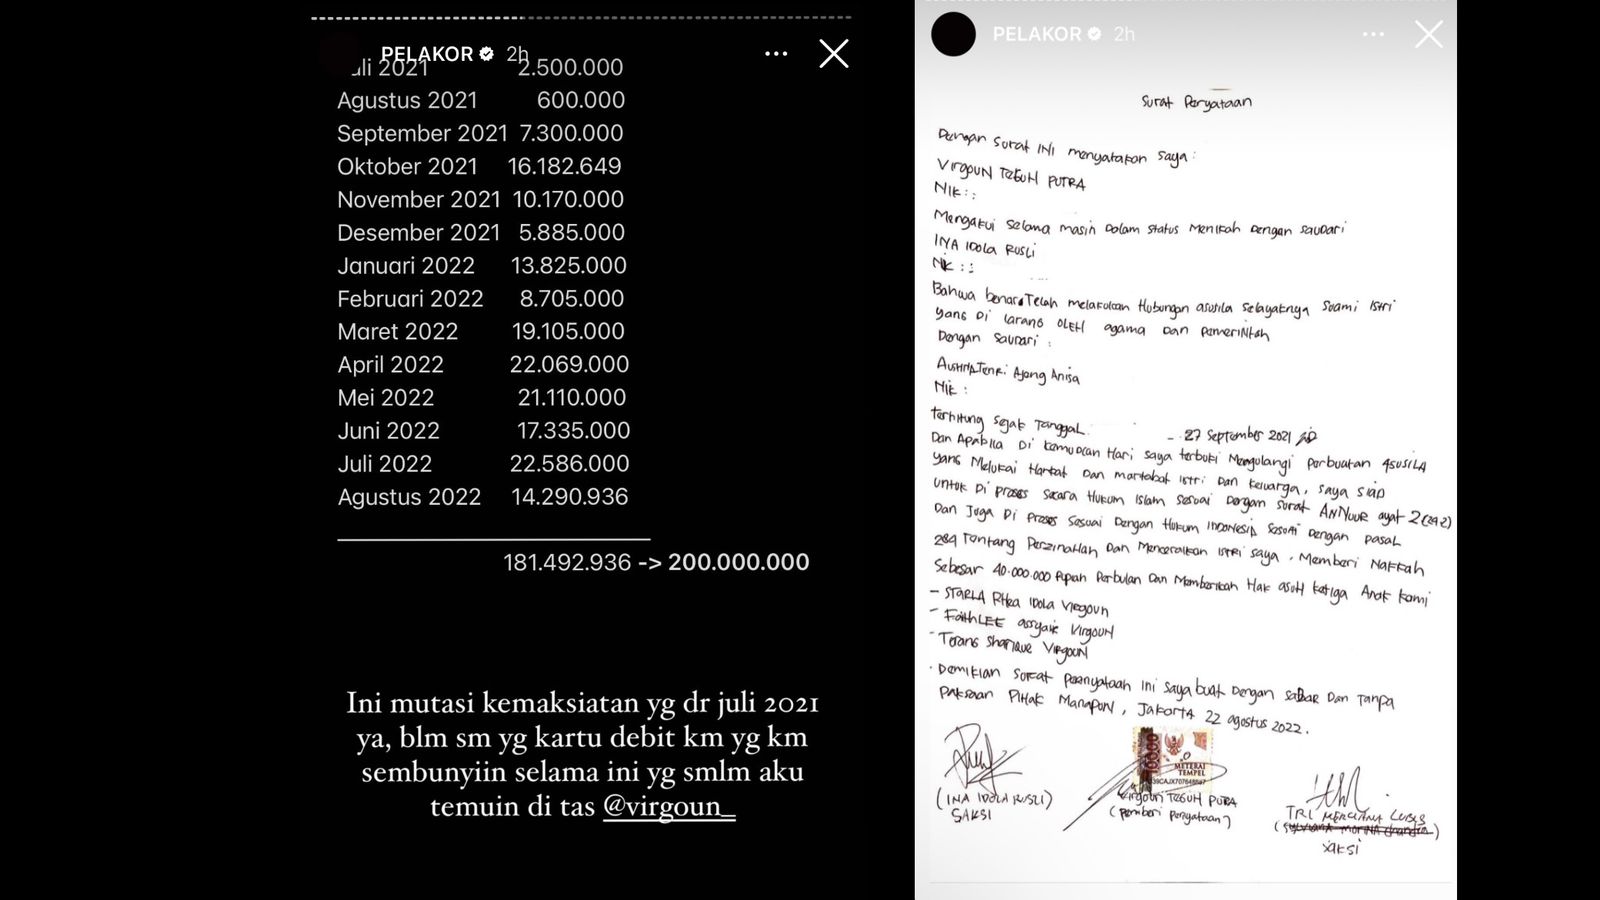 PELAKOR 2h
uli 2021 2.500.000
Agustus 2021 600.000
September 2021 7.300.000
Oktober 2021 16.182.649
November 2021 10.170.000
Desember 2021 5.885.000
Januari 2022 13.825.000
Februari 2022 8.705.000
Maret 2022 19.105.000
April 2022 22.069.000
Mei 2022 21.110.000
Juni 2022 17.335.000
Juli 2022 22.586.000
Agustus 2022 14.290.936
181.492.936 -> 200.000.000
Ini mutasi kemaksiatan yg dr juli 2021
ya, blm sm yg kartu debit km yg km
sembunyiin selama ini yg smlm aku
temuin di tas @virgoun_
PELAKOR 2h
Surat Peryataan
Dengan Surat INI menyatakan saya :
VIRGOUN TEGUH PUTRA
NIK : :
Mengakui Selama masih Dalam Status Menikah Dengan Saudari
INA IDOLA RUSLI
NIK : :
Bahwa benar Telah melakukan Hubungan asusila Selayaknya Suami Istri
yang Di larang OLEH agama Dan Pemerintah
Dengan Saudari :
Tenri Ajeng Anisa
NIK :
Terhitung Sejak Tanggal - 27 September 2021
Dan Apabila Di kemudian Hari saya terbukti Mengulangi Perbuatan ASUSILA
yang Melukai Harkat Dan martabat istri Dan keluarga, saya siap
untuk Di Proses Secara Hukum Islam Sesuai Dengan Surat ANNUUR ayat 2 (24 2)
Dan Juga Di Proses Sesuai Dengan Hukum INDONESIA Sesuai Dengan pasal
284 Tentang Perzinahan Dan Menceraikan istri saya, Memberi Nafkah
Sebesar 40.000.000 Rupiah Perbulan Dan Memberikan Hak asuh ketiga Anak kami
- STARLA RHea IDOLA VIRGOUN
- FaithLEE assyaik VIRGOUN
- Terang Sharique VIRGOUN
. Demikian Surat Peranyataan ini Saya buat Dengan sadar Dan Tanpa
Paksaan PIHak Manapun, Jakarta 22 agustus 2022.
10000
METERAI
TEMPEL
(INA IDOLA RUSLI)
SAKSI
Virgoun TEGUH PUTRA
(Pemberi Peryataan)
TRI MERCIANA LUBIS
SAKSI